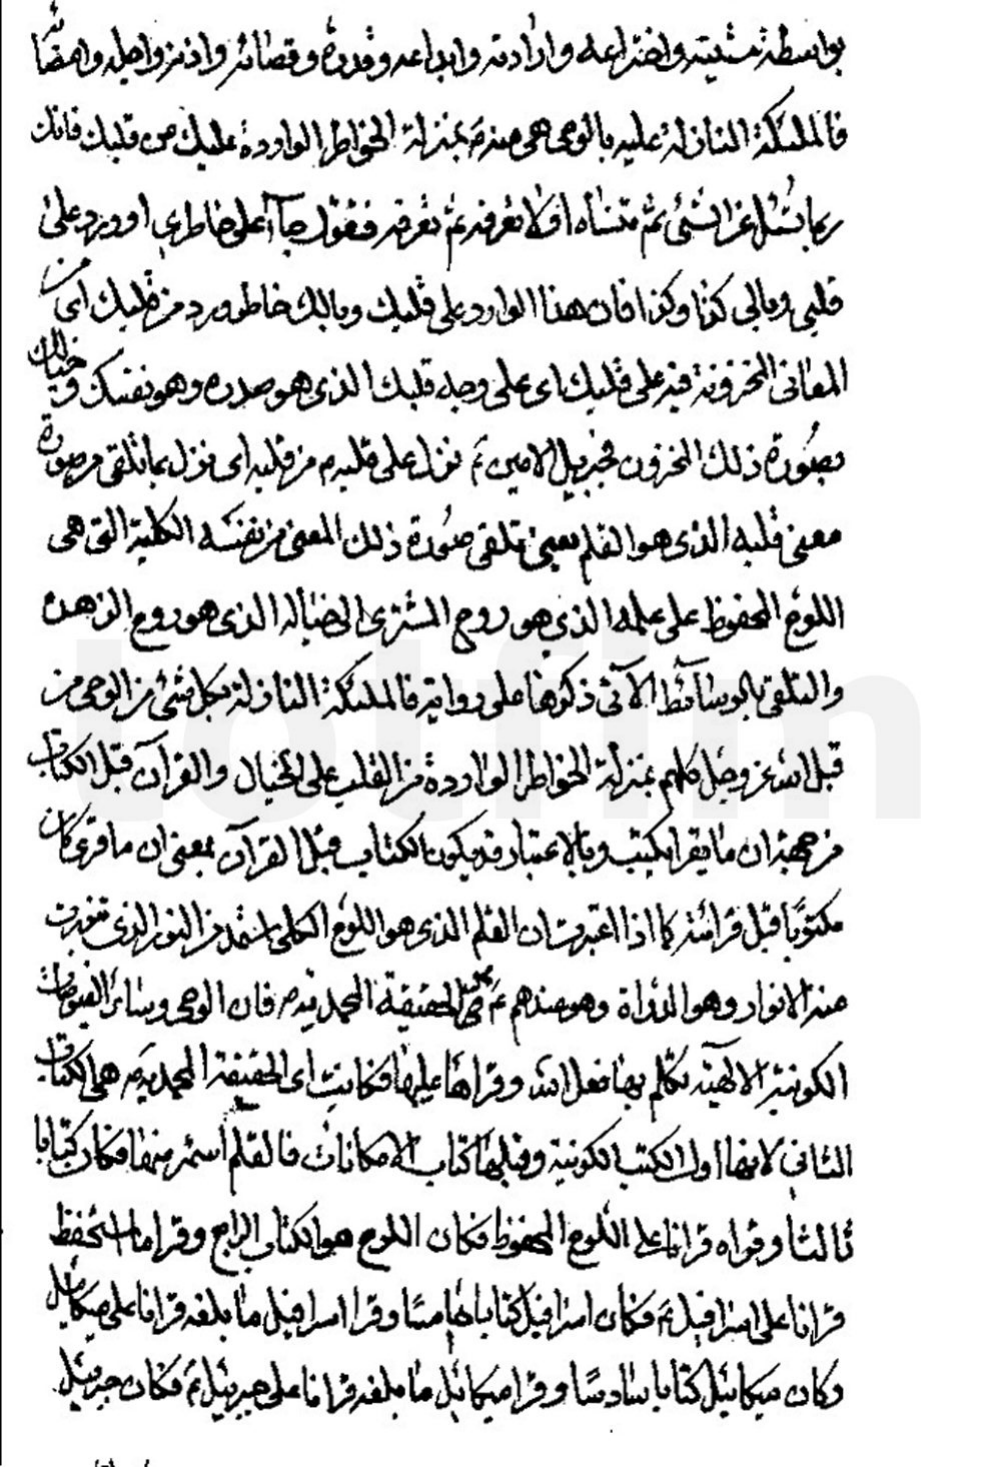 بواسطة مشيته واختراعه وارادته وابداعه وقدره وقضائه واذنه واجله وامضائه
فالملئكة النازلة عليه بالوحى هى منه بمنزلة الخواطر الواردة عليك من قلبك فانك
ربما تسئل عن الشئ ثم تنساه او لا تعرفه ثم تعرفه فتقول جاء على خاطرى او ورد على
قلبى وبالى كذا وكذا فان هذا الوارد على قلبك وبالك خاطر ورد من قلبك اى من
المعانى المخزونة فيه على قلبك اى على وجه قلبك الذى هو صدره وهو نفسك وخيالك
بصورة ذلك المخزون فجبريل الامين ع نزل على قلبه من قلبه اى نزل بما تلقى من صورة
معنى قلبه الذى هو القلم يعنى تلقى صورة ذلك المعنى من نفسه الكلية التى هى
اللوح المحفوظ على علمه الذى هو روح المشترى الى خياله الذى هو روح الزهرة
والتلقى بالوسائط الآتى ذكرها على رواية فالملئكة النازلة بكل شئ من الوحى من
قبل الله عز وجل كلهم بمنزلة الخواطر الواردة من القلب على الخيال والقرآن قبل الكتاب
من جهة ان ما يقرا يكتب وبالاعتبار قد يكون الكتاب قبل القرآن بمعنى ان ما قرئ كان
مكتوبا قبل قرائته كما اذا اعتبرت ان القلم الذى هو اللوح الكلى استمد من النور الذى تنورت
منه الانوار وهو الدواة وهو عندهم ع هى الحقيقة المحمدية فان الوحى وسائر الفيوضات
الكونية الالهية تكلم بها فعل الله وقراها عليها فكانت اى الحقيقة المحمدية هى الكتاب
الثانى لانها اول الكتب الكونية وقبلها كتاب الامكانات فالقلم استمد منها فكان كتابا
ثالثا وقراه قرانا على اللوح المحفوظ فكان اللوح هو الكتاب الرابع وقرا ما استحفظ
قرانا على اسرافيل ع فكان اسرافيل كتابا خامسا وقرا اسرافيل ما بلغه قرانا على ميكائيل
وكان ميكائيل كتابا سادسا وقرا ميكائيل ما بلغه قرانا على جبرئيل ع فكان جبرئيل
totfim